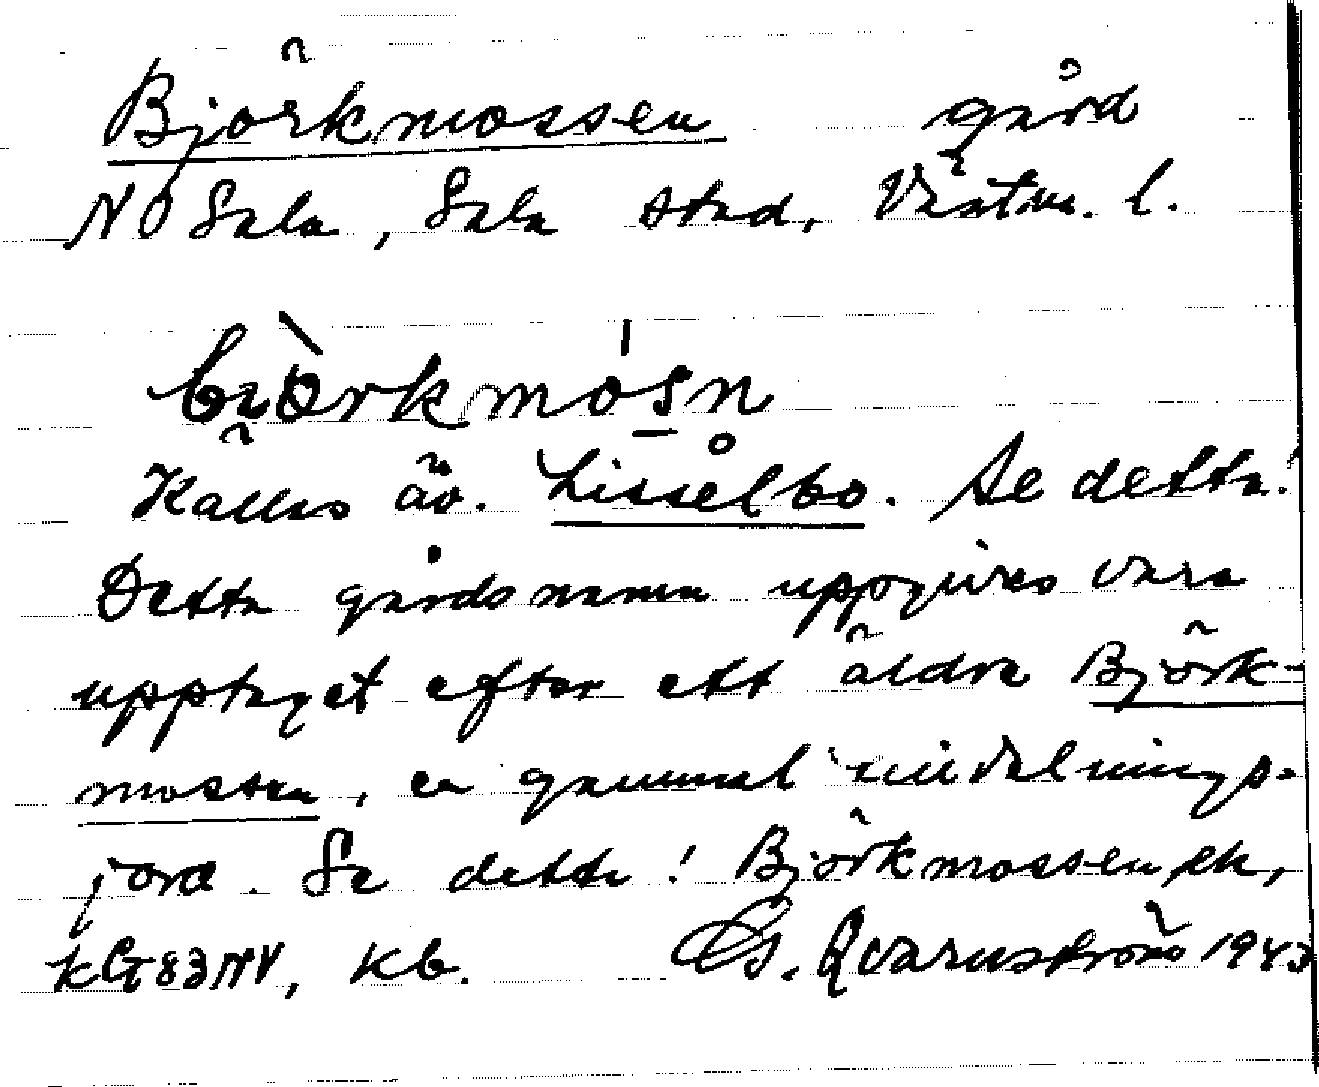 Björkmossen gård
NO Sala, Sala stad, Västm. l.
bjòrkmósn
Kallas äv. Lisselbo. Se detta!
Detta gårdsnamn uppgives vara
upptaget efter ett äldre Björk-
mossen, en gammal indelnings-
jord. Se detta! Björkmossen ek,
kG83NV, kb. G. Qvarnström 1943